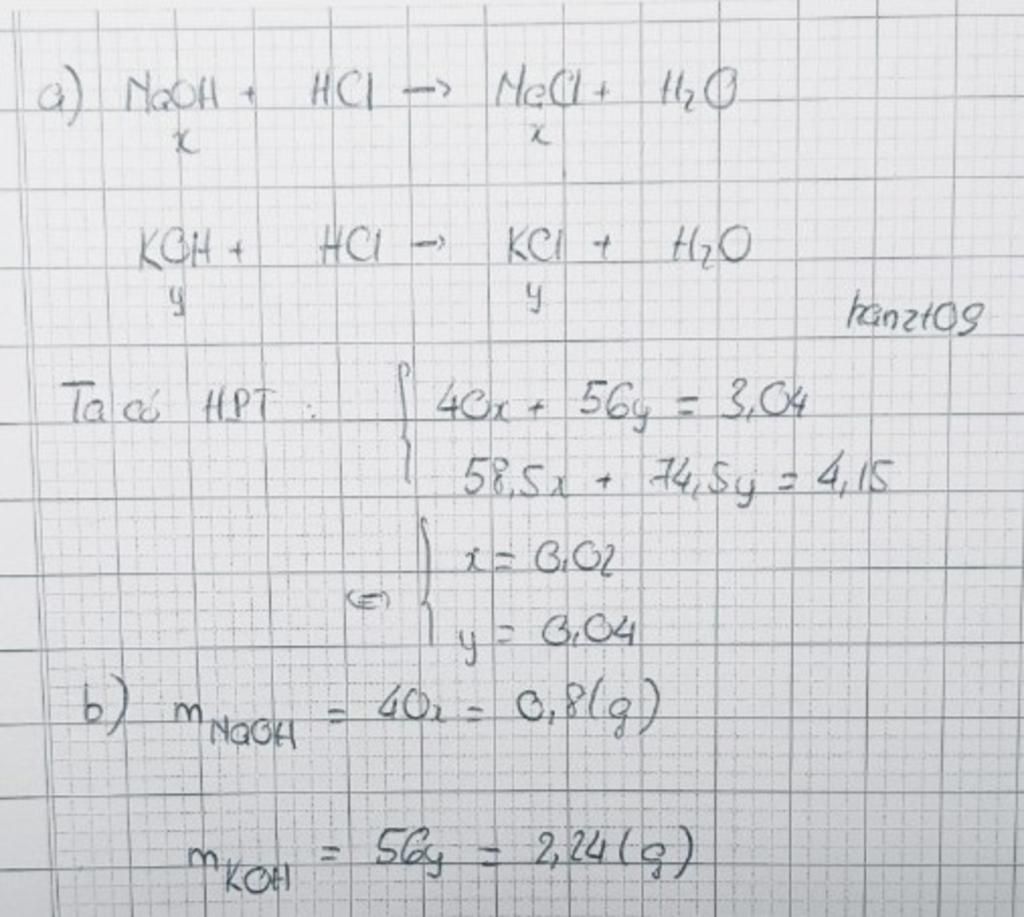 a) NaOH + HCl → NaCl + H₂O
x x
KOH + HCl → KCl + H₂O
y y
hanzt09
Ta có HPT : { 40x + 56y = 3,04
58,5x + 74,5y = 4,15
⇔ { x = 0,02
y = 0,04
b) m NaOH = 40x = 0,8(g)
m KOH = 56y = 2,24(g)